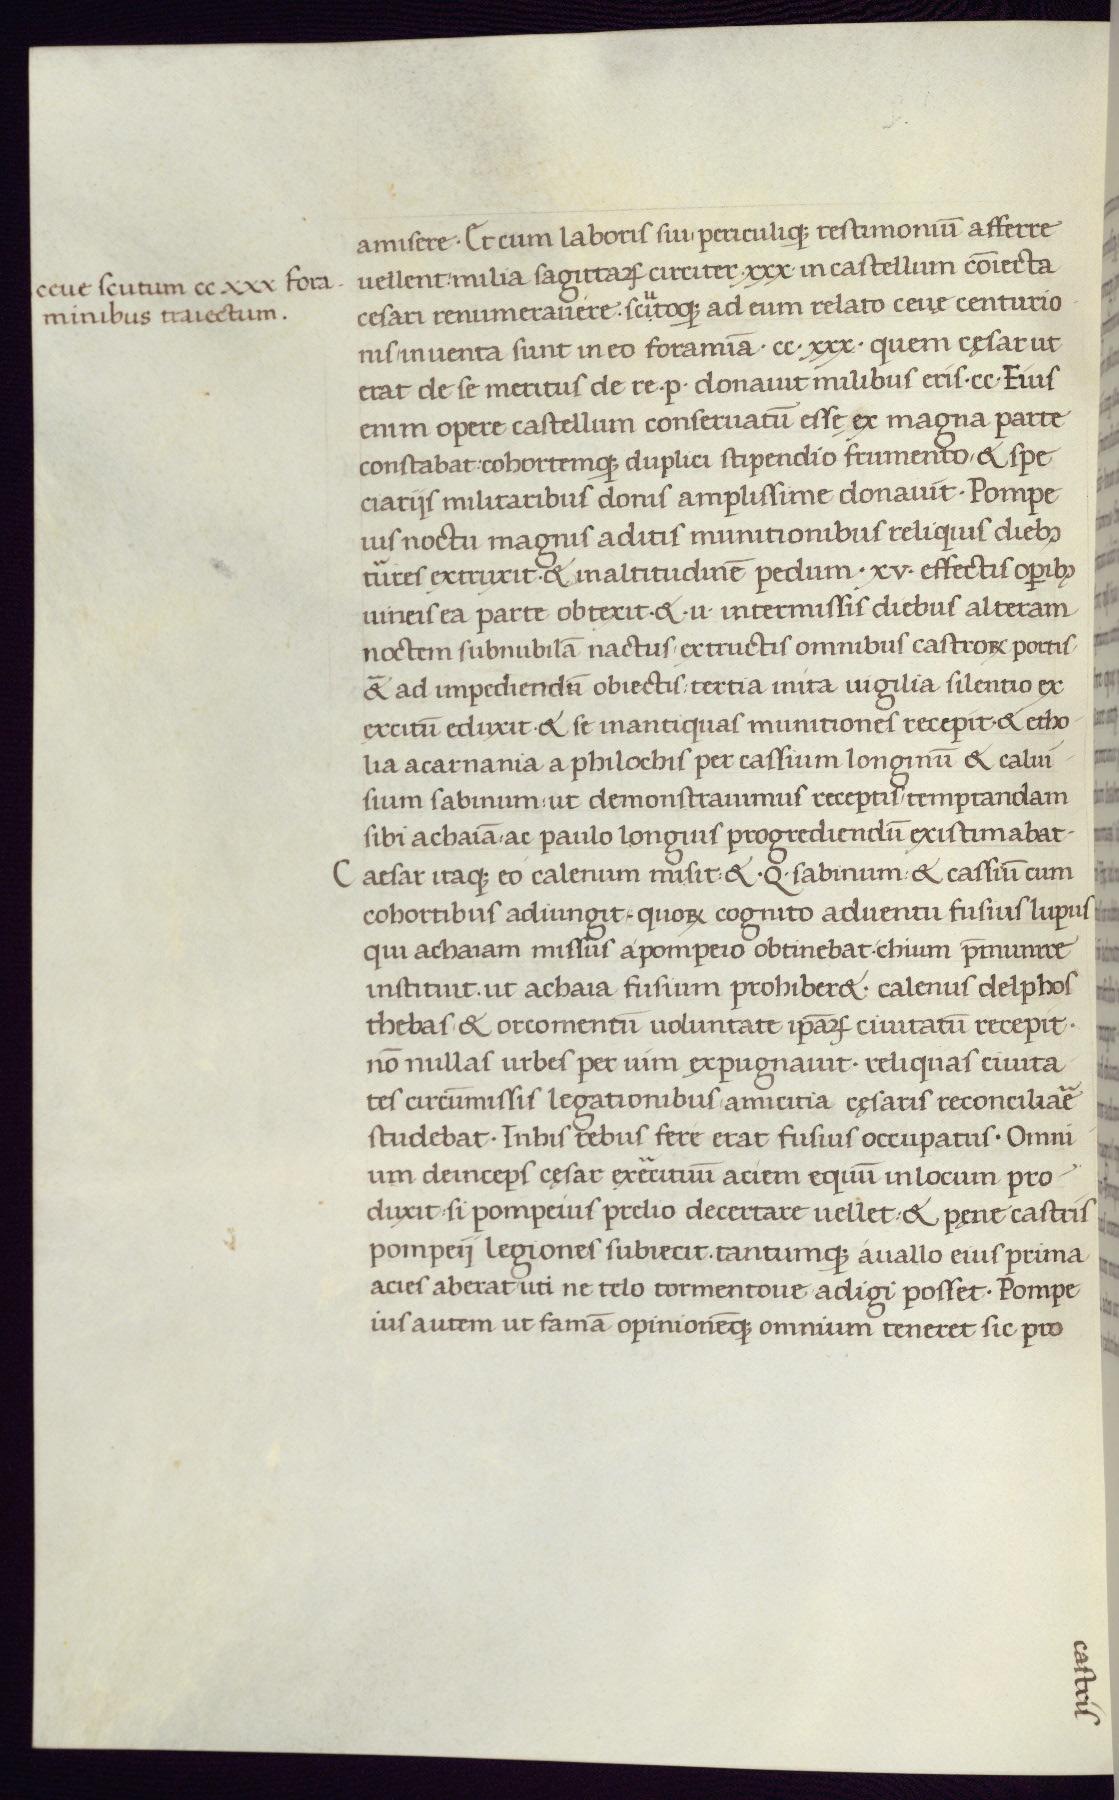 amisere· Et cum laboris sui periculiq; testimoniū afferre
ceue scutum cc xxx fora-
minibus traiectum.
uellent: milia sagittaꝝ circiter ·xxx· in castellum cōiecta
cesari renumerauere· scutoq; ad eum relato ceuę centurio
nis inuenta sunt in eo foramīa · cc· xxx· quem cęsar ut
erat de se meritus de re ·p· donauit milibus eris ·cc· Eius
enim opere castellum conseruatū esse ex magna parte
constabat· cohortemq; duplici stipendio frumento, & spe
ciarijs militaribus donis amplissime donauit· Pompe
ius noctu magnis aditis munitionibus reliquis dieb;
turres extruxit· & in altitudinē pedum · xv· effectis opib;
uineis ea parte obtexit· & ·u· intermissis diebus alteram
noctem subnubilā nactus, extructis omnibus castroꝝ portis
& ad impediendū obiectis: tertia inita uigilia silentio ex
ercitū eduxit· & se in antiquas munitiones recepit· & etho
lia acarnania a philochis per cassium longinū & calui
sium sabinum: ut demonstrauimus receptis, temptandam
sibi achaiā: ac paulo longius progrediendū existimabat·
Caesar itaq; eo calenum misit: & ·Q· sabinum: & cassiū cum
cohortibus adiungit· quoꝝ cognito aduentu fusius lupus
qui achaiam missus a pompeio obtinebat· chium p̄munire
instituit. ut achaia fusium prohiber&· calenus delphos
thebas & orcomentū uoluntate ipāꝝ ciuitatū recepit·
nō nullas urbes per uim expugnauit· reliquas ciuita
tes circūmissis legationibus amicitia cęsaris reconciliare
studebat· In his rebus fere erat fusius occupatus· Omni
um deinceps cęsar exercituū aciem equū in locum pro
duxit· si pompeius prelio decertare uellet· & pęne castris
pompeij legiones subiecit. tantumq; a uallo eius prima
acies aberat uti ne telo tormentoue adigi posset· Pompe
ius autem ut famā opinionēq; omnium teneret sic pro
castris